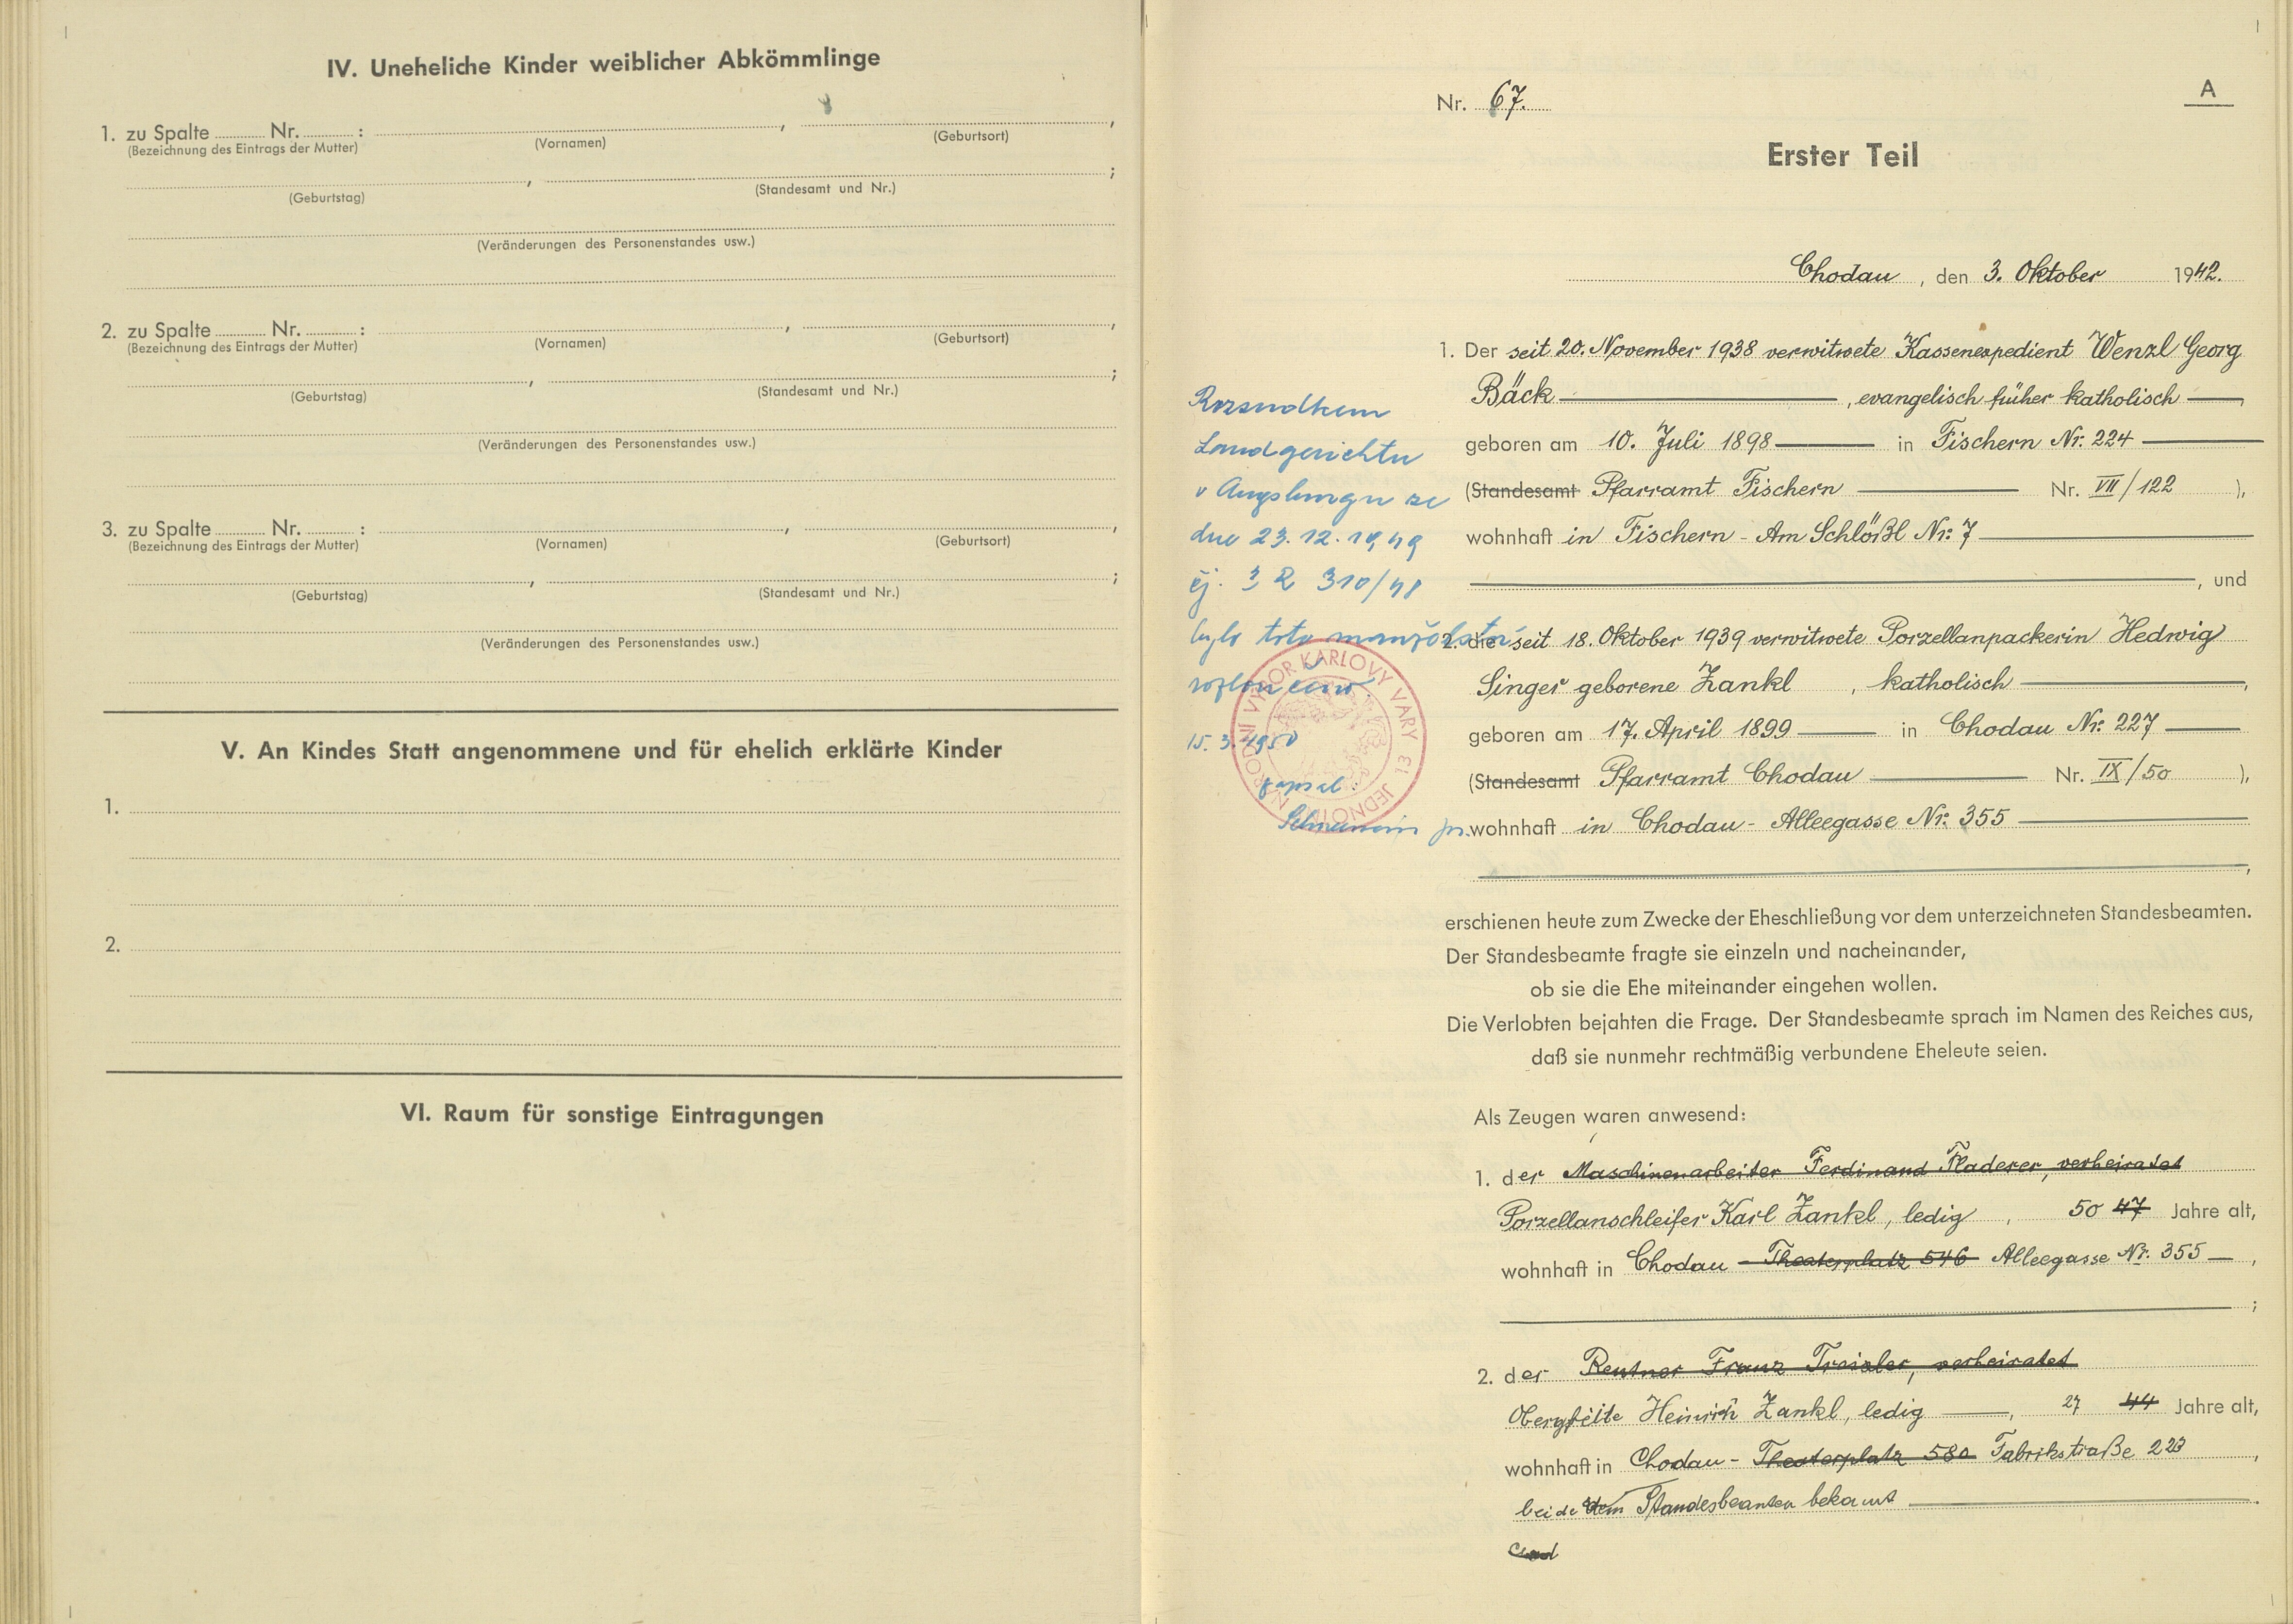 IV. Uneheliche Kinder weiblicher Abkömmlinge
1. zu Spalte ........ Nr. ........ : , ,
(Bezeichnung des Eintrags der Mutter) (Vornamen) (Geburtsort)
, ;
(Geburtstag) (Standesamt und Nr.)
(Veränderungen des Personenstandes usw.)
2. zu Spalte ........ Nr. ........ : , ,
(Bezeichnung des Eintrags der Mutter) (Vornamen) (Geburtsort)
, ;
(Geburtstag) (Standesamt und Nr.)
(Veränderungen des Personenstandes usw.)
3. zu Spalte ........ Nr. ........ : , ,
(Bezeichnung des Eintrags der Mutter) (Vornamen) (Geburtsort)
, ;
(Geburtstag) (Standesamt und Nr.)
(Veränderungen des Personenstandes usw.)
V. An Kindes Statt angenommene und für ehelich erklärte Kinder
1.
2.
VI. Raum für sonstige Eintragungen
A
Nr. 67.
Erster Teil
Chodau, den 3. Oktober 1942.
1. Der seit 20. November 1938 verwitwete Kassenexpedient Wenzl Georg
Bäck, evangelisch früher katholisch,
geboren am 10. Juli 1898 in Fischern Nr. 224
(Standesamt Pfarramt Fischern Nr. VII/122 ),
wohnhaft in Fischern - Am Schlößl Nr. 7
, und
2. die seit 18. Oktober 1939 verwitwete Porzellanpackerin Hedwig
Singer geborene Zankl, katholisch,
geboren am 17. April 1899 in Chodau Nr. 227
(Standesamt Pfarramt Chodau Nr. IX/50 ),
wohnhaft in Chodau - Alleegasse Nr. 355
,
Rozsudkem
Landgerichtu
v Augsburgu ze
dne 23. 12. 1949
čj. 3 R 310/48
bylo toto manželství
rozloučeno.
15. 3. 1950
zapsal:
NÁRODNÍ VÝBOR KARLOVY VARY
erschienen heute zum Zwecke der Eheschließung vor dem unterzeichneten Standesbeamten.
Der Standesbeamte fragte sie einzeln und nacheinander,
ob sie die Ehe miteinander eingehen wollen.
Die Verlobten bejahten die Frage. Der Standesbeamte sprach im Namen des Reiches aus,
daß sie nunmehr rechtmäßig verbundene Eheleute seien.
Als Zeugen waren anwesend:
1. der Maschinenarbeiter Ferdinand Fladerer, verheiratet
Porzellanschleifer Karl Zankl, ledig, 50 47 Jahre alt,
wohnhaft in Chodau - Theaterplatz 546 Alleegasse Nr. 355,
;
2. der Rentner Franz verheiratet
Heinrich Zankl, ledig, 27 44 Jahre alt,
wohnhaft in Chodau - Theaterplatz 580 Fabrikstraße 223,
beide dem Standesbeamten bekannt.